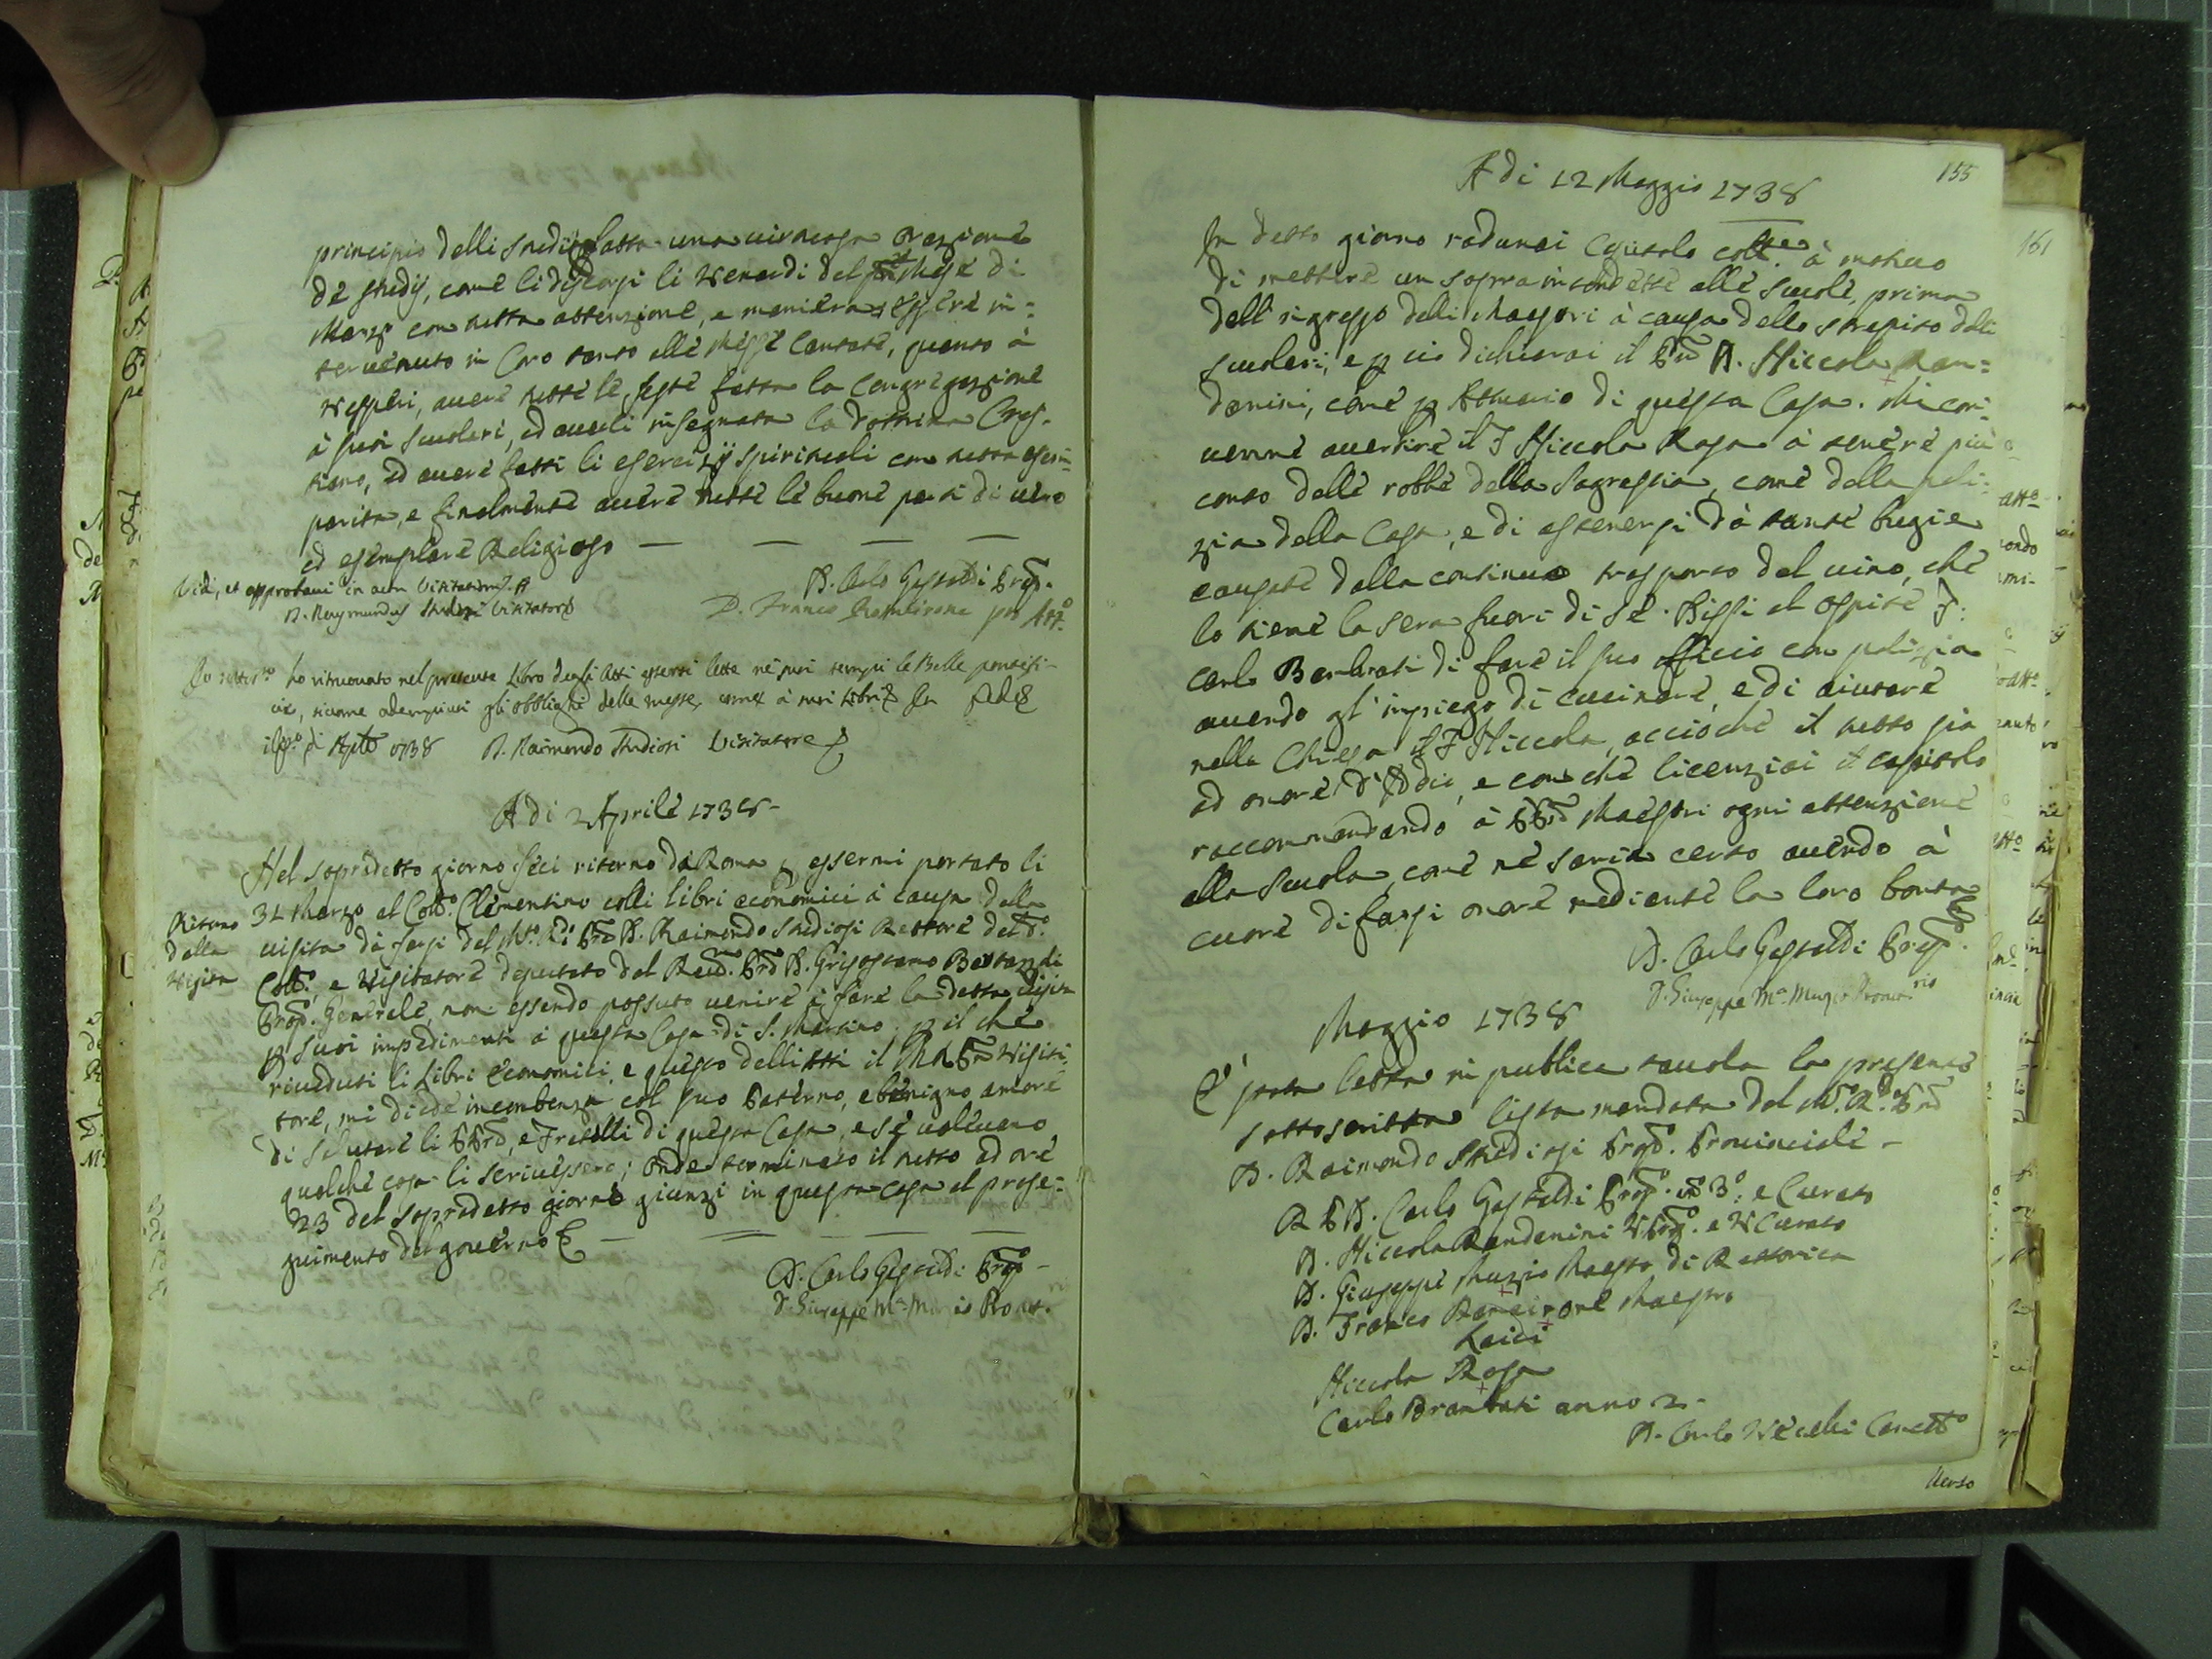 principio delli studij fatta una virtuosa orazione
de studij, come li discorsi li Venerdi del mese di
Marzo con tutta attenzione, e maniera, essere in=
tervenuto in Coro tanto alle Messe Cantate, quanto à
Vesperi, avere tutte le feste fatta la Congregazione
à suoi scuolari, ed averli insegnata la Dottrina Cris=
tiana, ed avere fatti li esercizij spirituali con tutta esem=
parità, e finalmente avere tutte le buone parti di vero
ed esemplare Religioso —
D. Carlo Gastaldi Prep.
Vidi, et approbavi in actu Visitationis
D. Raymundus Studiosi Visitator
D. Franco Ramairone pro Att.
Io sottos.to ho ritruovato nel presente Libro degli Atti essersi lette ne' suoi tempi le Bolle pontifi-
cie, sicome adempiuti gli obblighi delle messe, come à suoi Libri In fede
di Aple 1738 D. Raimondo Studiosi Visitatore
A di 2 Aprile 1738 -
Nel sopradetto giorno feci ritorno da Roma p essermi portato li
31 Marzo al Coll.o Clementino colli libri economici à causa della
Ritorno
della
Visita
visita da farsi del M.to R.do Prd D. Raimondo Studiosi Rettore del d.o
Coll.o, e Visitatore deputato dal Reud. Prd D. Grisostomo Bertazoli
Prep. Generale, non essendo possuto venire à fare la detta visita
p suoi impedimenti à questa Casa di S. Martino; p il che
riveduti li Libri economici, e questo delli Atti il Prd Visita
tore, mi diede incombenza col suo Paterno, e benigno amore
di salutare li PPrd, e Fratelli di questa Casa, e se volevano
qualche cosa li scrivessero; onde terminato il tutto ad ore
23 del sopradetto giorno giunsi in questa casa al prose=
guimento del governo —
D. Carlo Gastaldi Prep.o -
D. Giuseppe M.a Muzio Proat.
155
A di 12 Maggio 1738
In detto giorno radunai Capitolo coll.le à motivo
di mettere un sopraintendette alle scuole, prima
dell'ingresso delli Maestri à causa dello strepito delli
scuolari, e p ciò dichiarai il Prd D. Niccola Ran=
danini, come p Attuario di questa Casa. Mi con=
venne avertire il F Niccola Rosa à tenere più
conto delle robbe della Sagrestia, come della puli=
zia della Casa, e di astenersi dà tante bugie
causate dalla continua trasporto del vino, che
lo tiene la sera fuori di se. Dissi al ospite F.
Carlo Bambrati di fare il suo officio con pulizia
avendo gl'impiego di cucinare, e di aiutare
nella Chiesa il F Niccola, acciòche il tutto sia
ad onore d'Iddio, e con che licenziai il capitolo
raccommandando à PPrd Maestri ogni attenzione
alla scuola, come ne saria certo avendo à
cuore di farsi onore mediante la loro bontà
D. Carlo Gastaldi Prep.o
D. Giuseppe M.a Muzio Proatt.rio
Maggio 1738
E' stata letta in publica tavola la presente
sottoscritta lista mandata dal M.o R.do Prd
D. Raimondo Studiosi Prep.o Provinciale -
R P D. Carlo Gastaldi Prep.o an 3.o: e Curato
D. Niccola Randanini VPrep.o e VCurato
D. Giuseppe Muzio Maestro di Rettorica
D. Franco Ramairone Maestro
Laici
Niccola Rosa
Carlo Brambati anno 2 -
D. Carlo Vecelli Cancell.o
Verso
161